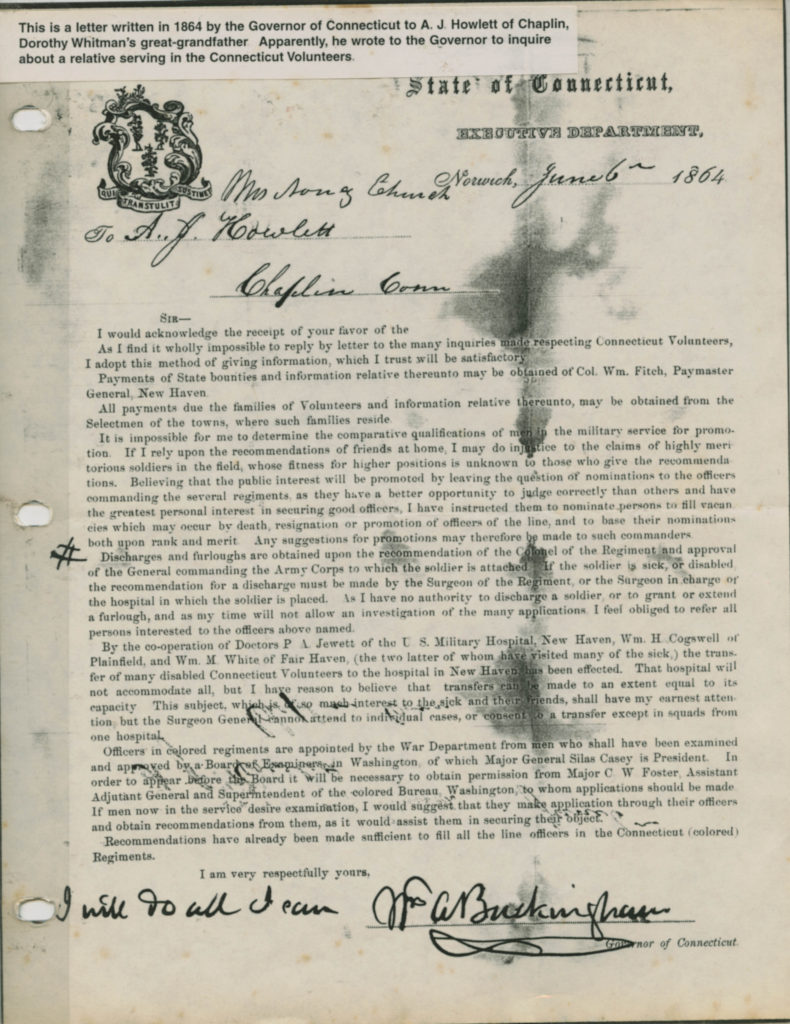 This is a letter written in 1864 by the Governor of Connecticut to A. J. Howlett of Chaplin,
Dorothy Whitman's great-grandfather Apparently, he wrote to the Governor to inquire
about a relative serving in the Connecticut Volunteers.
State of Connecticut,
EXECUTIVE DEPARTMENT,
QUI TRANSTULIT SUSTINET
Norwich, June 6 1864
Church
To A. J. Howlett
Chaplin Conn
SIR—
I would acknowledge the receipt of your favor of the
As I find it wholly impossible to reply by letter to the many inquiries made respecting Connecticut Volunteers,
I adopt this method of giving information, which I trust will be satisfactory
Payments of State bounties and information relative thereunto may be obtained of Col. Wm. Fitch, Paymaster
General, New Haven
All payments due the families of Volunteers and information relative thereunto, may be obtained from the
Selectmen of the towns, where such families reside
It is impossible for me to determine the comparative qualifications of men in the military service for promo-
tion. If I rely upon the recommendations of friends at home, I may do injustice to the claims of highly meri
torious soldiers in the field, whose fitness for higher positions is unknown to those who give the recommenda
tions. Believing that the public interest will be promoted by leaving the question of nominations to the officers
commanding the several regiments, as they have a better opportunity to judge correctly than others and have
the greatest personal interest in securing good officers, I have instructed them to nominate persons to fill vacan
cies which may occur by death, resignation or promotion of officers of the line, and to base their nominations
both upon rank and merit. Any suggestions for promotions may therefore be made to such commanders
# Discharges and furloughs are obtained upon the recommendation of the Colonel of the Regiment and approval
of the General commanding the Army Corps to which the soldier is attached If the soldier is sick, or disabled
the recommendation for a discharge must be made by the Surgeon of the Regiment, or the Surgeon in charge of
the hospital in which the soldier is placed. As I have no authority to discharge a soldier, or to grant or extend
a furlough, and as my time will not allow an investigation of the many applications, I feel obliged to refer all
persons interested to the officers above named.
By the co-operation of Doctors P. A. Jewett of the U. S. Military Hospital, New Haven, Wm. H. Cogswell of
Plainfield, and Wm. M. White of Fair Haven, (the two latter of whom have visited many of the sick,) the trans-
fer of many disabled Connecticut Volunteers to the hospital in New Haven, has been effected. That hospital will
not accommodate all, but I have reason to believe that transfers can be made to an extent equal to its
capacity This subject, which is of so much interest to the sick and their friends, shall have my earnest atten-
tion but the Surgeon General cannot attend to individual cases, or consent to a transfer except in squads from
one hospital.
Officers in colored regiments are appointed by the War Department from men who shall have been examined
and approved by a Board of Examiners, in Washington, of which Major General Silas Casey is President. In
order to appear before the Board it will be necessary to obtain permission from Major C. W. Foster, Assistant
Adjutant General and Superintendent of the colored Bureau, Washington, to whom applications should be made
If men now in the service desire examination, I would suggest that they make application through their officers
and obtain recommendations from them, as it would assist them in securing their object.
Recommendations have already been made sufficient to fill all the line officers in the Connecticut (colored)
Regiments.
I am very respectfully yours,
I will do all I can Wm A Buckingham
Governor of Connecticut.